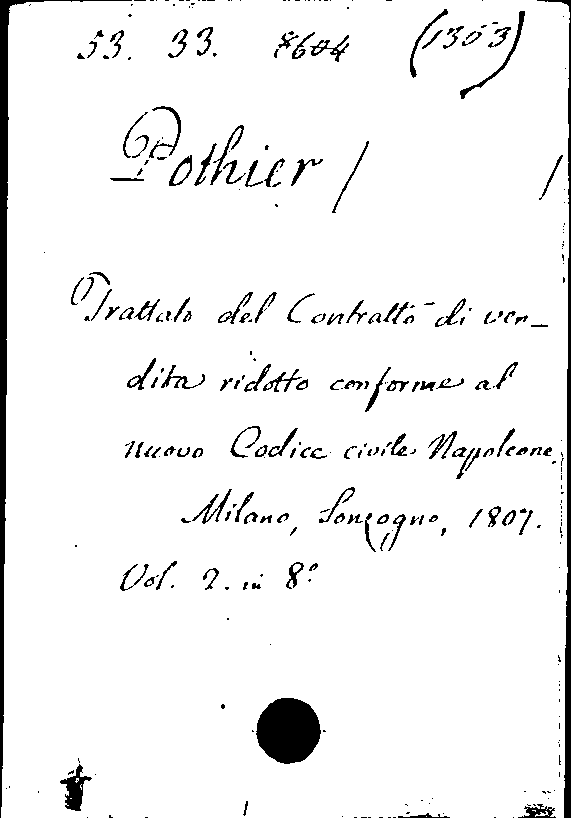 53. 33. 8604 (1353)
Pothier /      /
Trattato del Contratto di ven_
dita ridotto conforme al
nuovo Codice civile Napoleone.
Milano, Sonzogno, 1807.
Vol. 2. in 8°